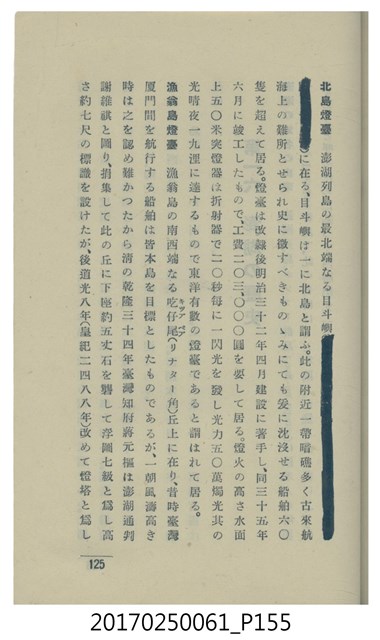 北島燈臺　澎湖列島の最北端なる目斗嶼
に在る、目斗嶼は一に北島と謂ふ。此の附近一帶暗礁多く古來航
海上の難所とせられ史に徵すべきものゝみにても爰に沈沒せる船舶六〇
隻を超えて居る。燈臺は改隷後明治三十二年四月建設に著手し、同三十五年
六月に竣工したもので、工費二〇三、〇〇〇圓を要して居る。燈火の高さ水面
上五〇米突燈器は折射器で二〇秒每に一閃光を發し光力五〇萬燭光其の
光晴夜一九浬に達するもので東洋有數の燈臺であると謂はれて居る。
漁翁島燈臺　漁翁島の南西端なる吃仔尾（リナター角）丘上に在り、昔時臺灣
厦門間を航行する船舶は皆本島を目標としたものであるが、一朝風濤高き
時は之を認め難かつたから淸の乾隆三十四年臺灣知府蔣元樞は澎湖通判
謝維祺と圖り、捐集して此の丘に下座約五丈石を甃して浮圖七級と爲し高
さ約七尺の標識を設けたが、後道光八年（皇紀二四八八年）改めて燈塔と爲し
125
20170250061_P155